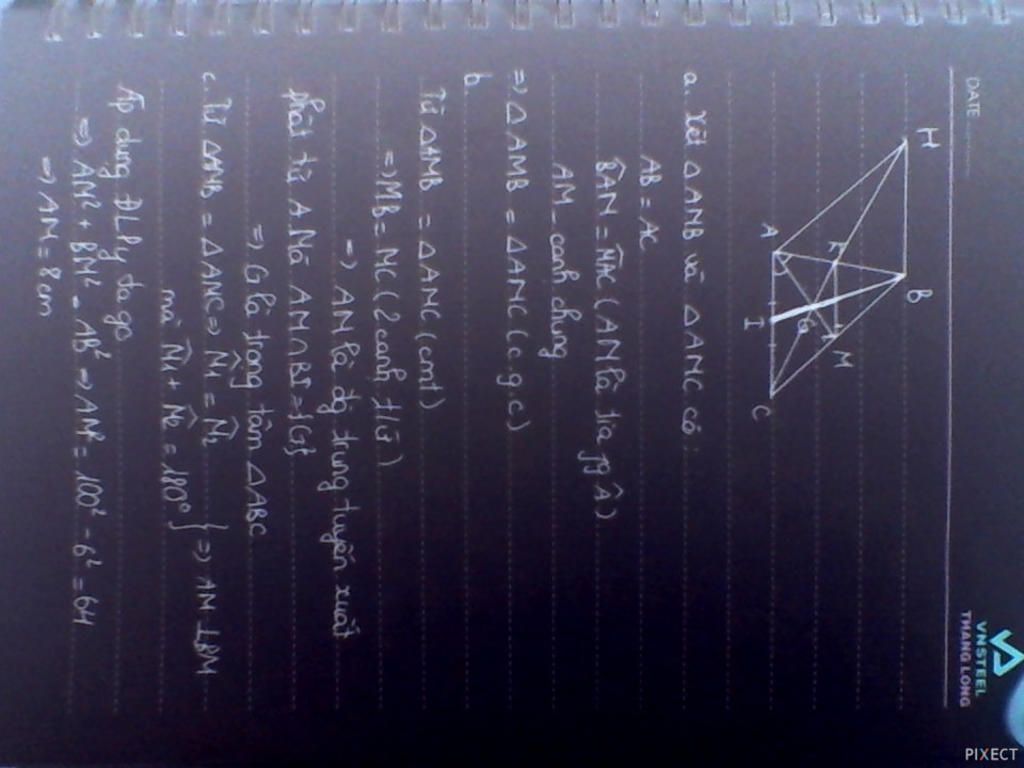 DATE
VNSTEEL
THANG LONG
H
B
K
M
A
G
I
C
a. Xét △AMB và △AMC có:
AB = AC
B̂AM = M̂AC (AM là tia pg Â)
AM _ cạnh chung
⇒ △AMB = △AMC (c.g.c)
b
Từ △AMB = △AMC (cmt)
⇒ MB = MC (2 cạnh t/ứ)
⇒ AM là đg trung tuyến xuất
phát từ A. Mà AM ∩ BI = {G}
⇒ G là trọng tâm △ABC
c. Từ △AMB = △AMC ⇒ M̂₁ = M̂₂
mà M̂₁ + M̂₂ = 180° } ⇒ AM ⊥ BM
Áp dụng ĐL Py ta go
⇒ AM² + BM² = AB² ⇒ AM² = 100² - 6² = 64
⇒ AM = 8cm
PIXECT